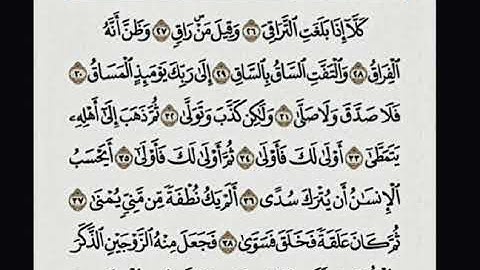 كَلَّآ إِذَا بَلَغَتِ ٱلتَّرَاقِىَ ٢٦ وَقِيلَ مَنْۜ رَاقٍ ٢٧ وَظَنَّ أَنَّهُ
ٱلْفِرَاقُ ٢٨ وَٱلْتَفَّتِ ٱلسَّاقُ بِٱلسَّاقِ ٢٩ إِلَىٰ رَبِّكَ يَوْمَئِذٍ ٱلْمَسَاقُ ٣٠
فَلَا صَدَّقَ وَلَا صَلَّىٰ ٣١ وَلَٰكِن كَذَّبَ وَتَوَلَّىٰ ٣٢ ثُمَّ ذَهَبَ إِلَىٰٓ أَهْلِهِۦ
يَتَمَطَّىٰٓ ٣٣ أَوْلَىٰ لَكَ فَأَوْلَىٰ ٣٤ ثُمَّ أَوْلَىٰ لَكَ فَأَوْلَىٰٓ ٣٥ أَيَحْسَبُ
ٱلْإِنسَٰنُ أَن يُتْرَكَ سُدًى ٣٦ أَلَمْ يَكُ نُطْفَةً مِّن مَّنِىٍّ يُمْنَىٰ ٣٧
ثُمَّ كَانَ عَلَقَةً فَخَلَقَ فَسَوَّىٰ ٣٨ فَجَعَلَ مِنْهُ ٱلزَّوْجَيْنِ ٱلذَّكَرَ